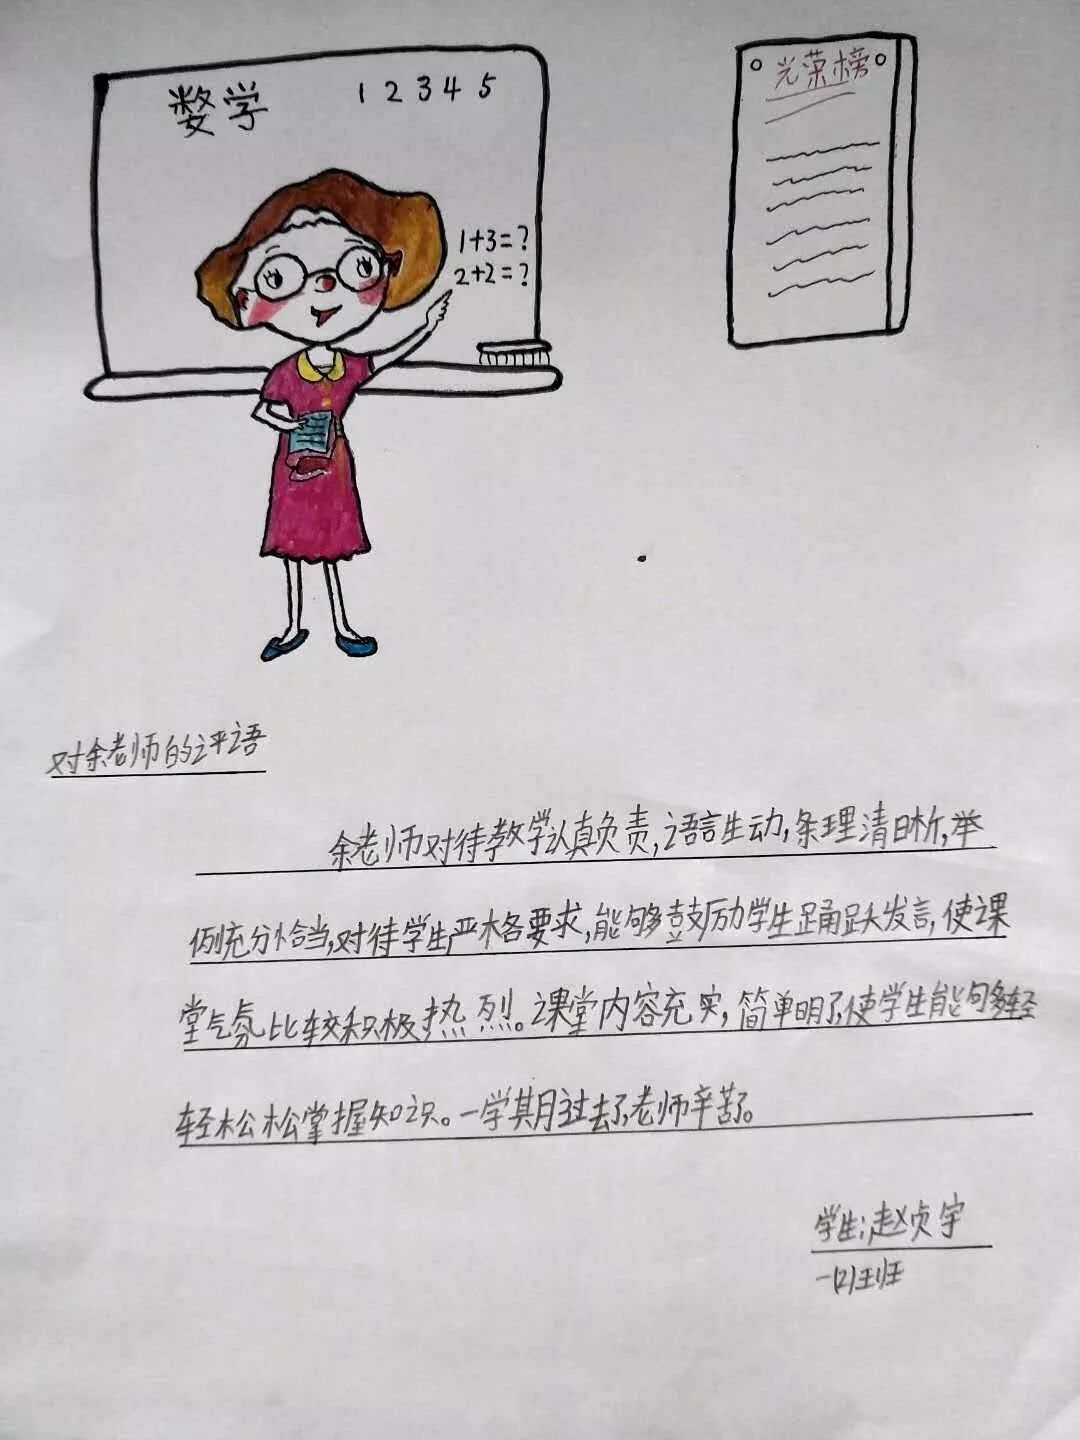 数学 1 2 3 4 5
光荣榜
1+3=?
2+2=?
对余老师的评语
余老师对待教学认真负责,语言生动,条理清晰,举
例充分恰当,对待学生严格要求,能够鼓励学生踊跃发言,使课
堂气氛比较积极热烈。课堂内容充实,简单明了,使学生能够轻
轻松松掌握知识。一学期过去了,老师辛苦了。
学生:赵贞宇
一(2)班